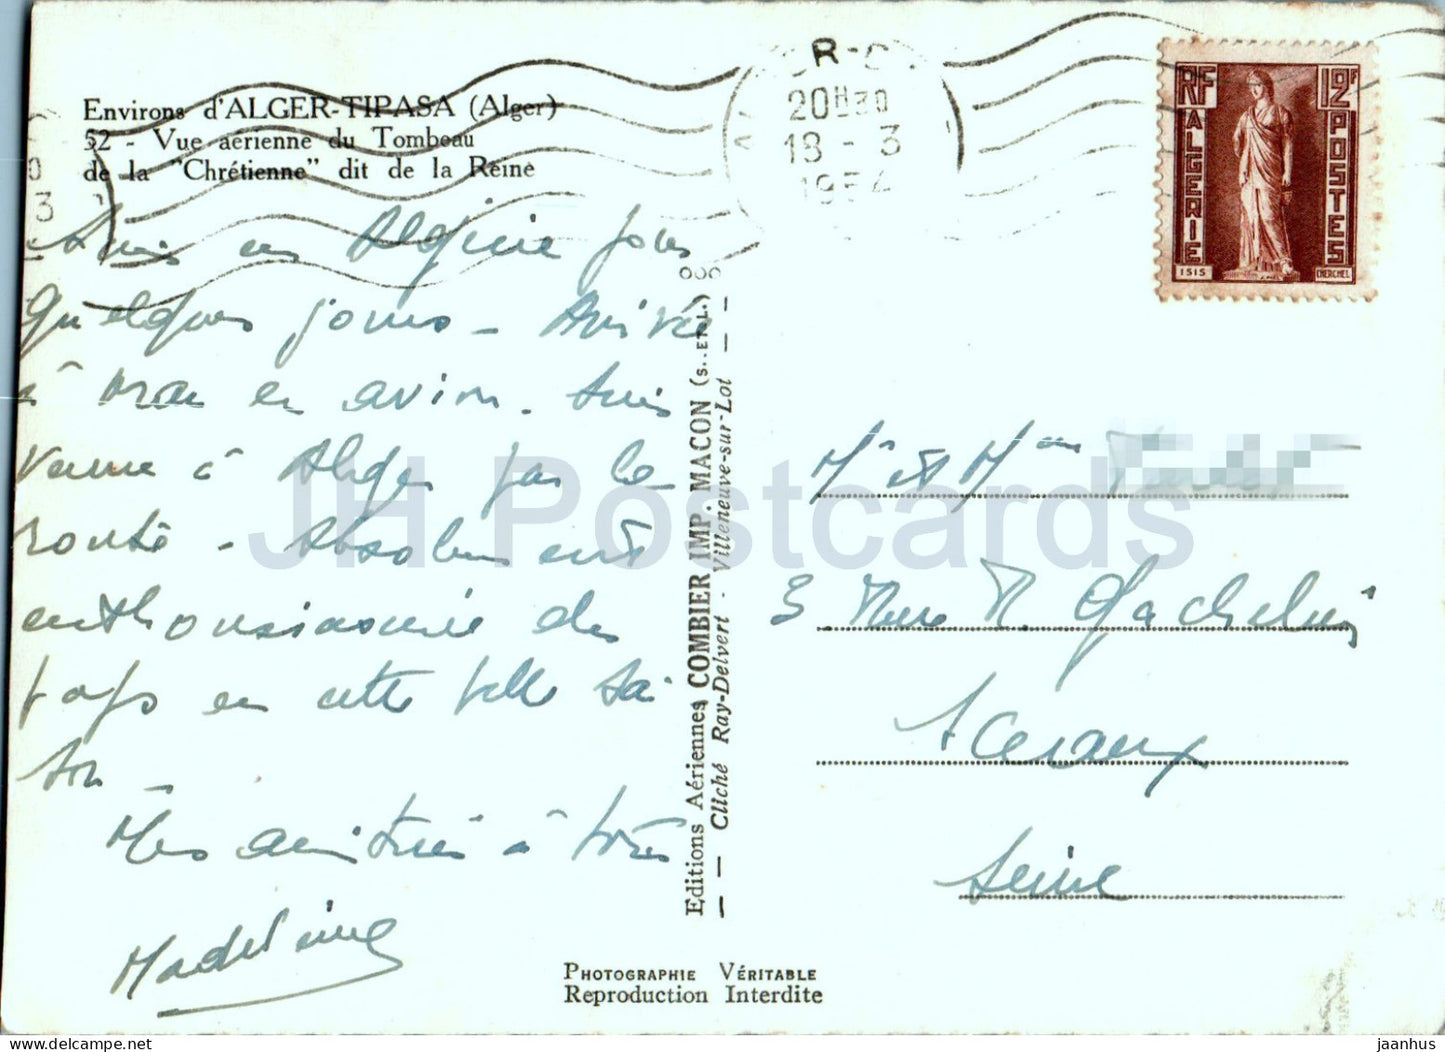 Environs d'ALGER-TIPASA (Alger)
52 - Vue aérienne du Tombeau
de la "Chrétienne" dit de la Reine
R-G
20H30
18 - 3
1954
RF
12F
ALGERIE
POSTES
ISIS
CHERCHEL
Suis en Algérie pour
quelques jours - Arrivée
à Oran en avion. Suis
venue à Alger par la
route - Absolument
enthousiasmée du
pays en cette belle sai
son -
Mes amitiés à tous
Madeleine
Editions Aériennes COMBIER IMP. MACON (S.-ET-L.)
Cliché Ray-Delvert - Villeneuve-sur-Lot
Mr et Mme
3 Rue
Sceaux
Seine
PHOTOGRAPHIE VÉRITABLE
Reproduction Interdite
JH Postcards
jaanhus @ delcampe.net